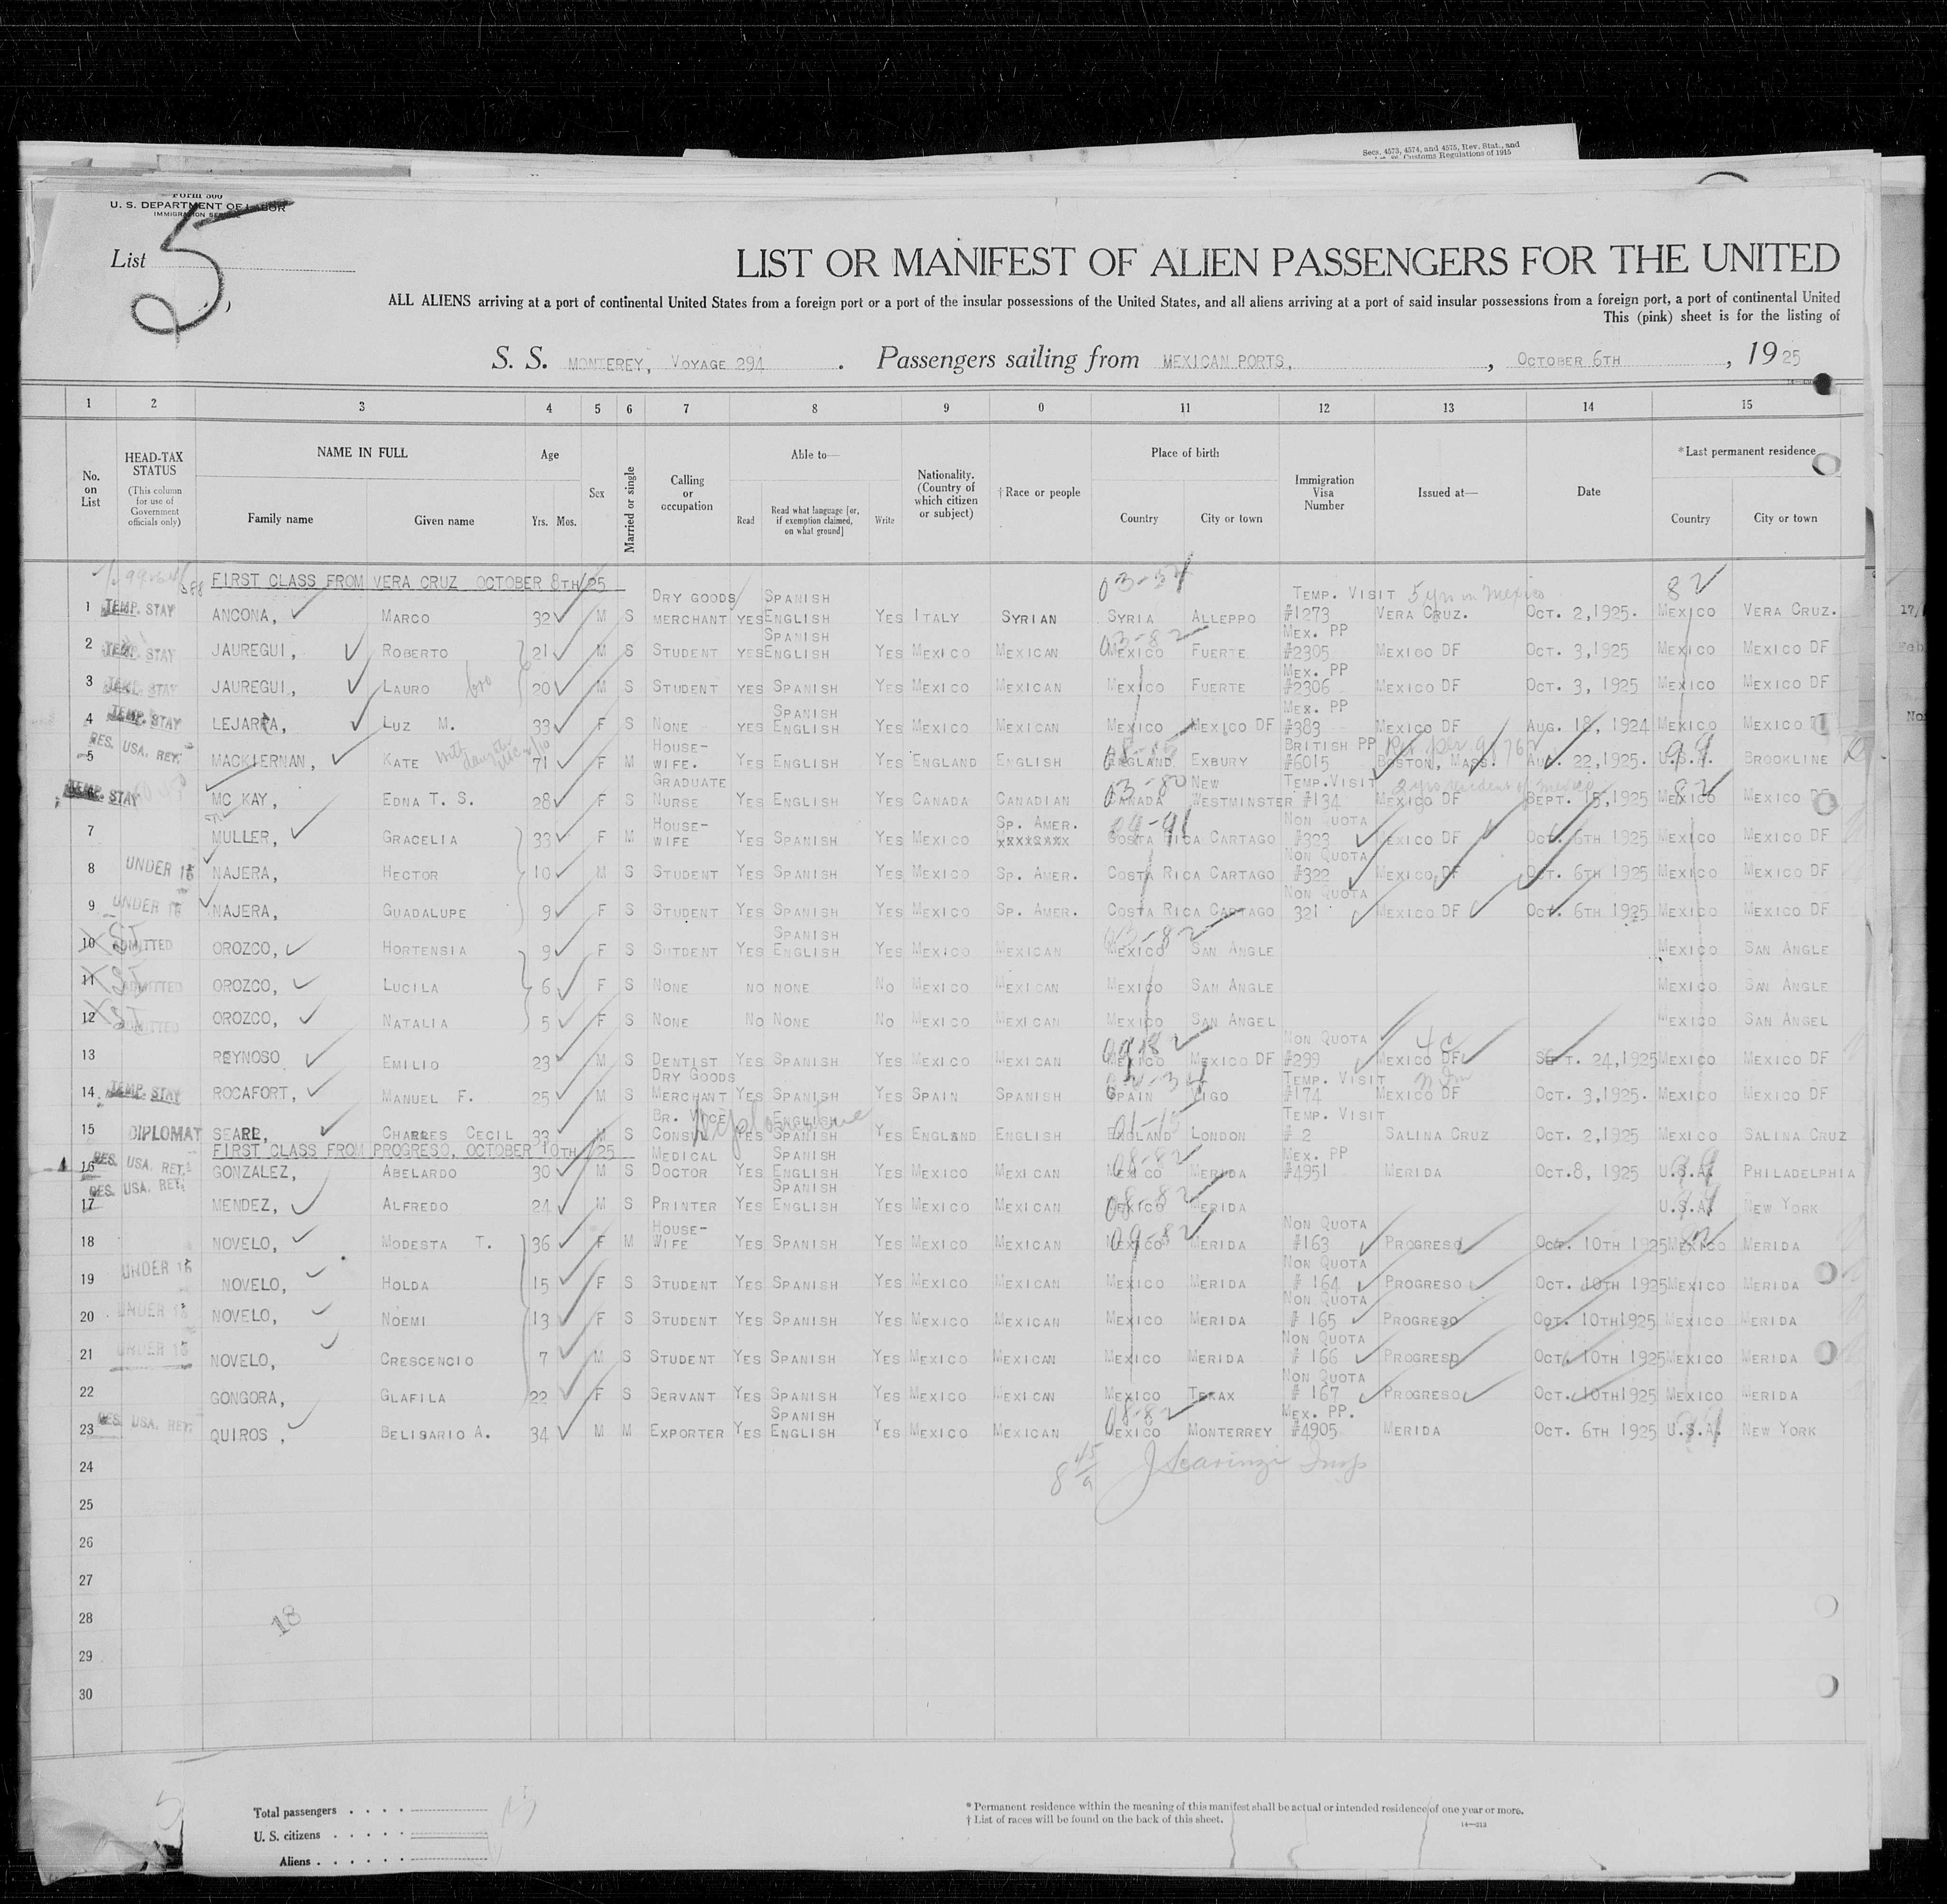 Secs. 4573, 4574, and 4575, Rev. Stat., and
Customs Regulations of 1915
Form 500
U. S. DEPARTMENT OF LABOR
IMMIGRATION SERVICE
List 5
LIST OR MANIFEST OF ALIEN PASSENGERS FOR THE UNITED
ALL ALIENS arriving at a port of continental United States from a foreign port or a port of the insular possessions of the United States, and all aliens arriving at a port of said insular possessions from a foreign port, a port of continental United
This (pink) sheet is for the listing of
S. S. MONTEREY, VOYAGE 294 . Passengers sailing from MEXICAN PORTS, , OCTOBER 6TH , 1925
1 2 3 4 5 6 7 8 9 0 11 12 13 14 15
No. on List
HEAD-TAX STATUS (This column for use of Government officials only)
NAME IN FULL Family name Given name
Age Yrs. Mos.
Sex
Married or single
Calling or occupation
Able to— Read Read what language [or, if exemption claimed, on what ground] Write
Nationality. (Country of which citizen or subject)
†Race or people
Place of birth Country City or town
Immigration Visa Number
Issued at—
Date
*Last permanent residence Country City or town
FIRST CLASS FROM VERA CRUZ OCTOBER 8TH/25 03-54 82
DRY GOODS SPANISH TEMP. VISIT 5 yrs in Mexico
1 TEMP. STAY ANCONA, MARCO 32 M S MERCHANT YES ENGLISH YES ITALY SYRIAN SYRIA ALLEPPO #1273 VERA CRUZ. OCT. 2, 1925. MEXICO VERA CRUZ.
SPANISH 03-82 MEX. PP
2 TEMP. STAY JAUREGUI, ROBERTO 21 M S STUDENT YES ENGLISH YES MEXICO MEXICAN MEXICO FUERTE #2305 MEXICO DF OCT. 3, 1925 MEXICO MEXICO DF
MEX. PP
3 TEMP. STAY JAUREGUI, LAURO bro 20 M S STUDENT YES SPANISH YES MEXICO MEXICAN MEXICO FUERTE #2306 MEXICO DF OCT. 3, 1925 MEXICO MEXICO DF
SPANISH MEX. PP
4 TEMP. STAY LEJARZA, LUZ M. 33 F S NONE YES ENGLISH YES MEXICO MEXICAN MEXICO MEXICO DF #383 MEXICO DF AUG. 18, 1924 MEXICO MEXICO
HOUSE- BRITISH PP
5 RES. USA. RET. MACKIERNAN, KATE with daughter 71 F M WIFE. YES ENGLISH YES ENGLAND ENGLISH ENGLAND EXBURY #6015 BOSTON, MASS. AUG. 22, 1925. U.S.A. BROOKLINE
GRADUATE 03-80 NEW TEMP. VISIT 2 yrs resident of Mexico 82
6 TEMP. STAY MC KAY, EDNA T. S. 28 F S NURSE YES ENGLISH YES CANADA CANADIAN CANADA WESTMINSTER #134 MEXICO DF SEPT. 15, 1925 MEXICO MEXICO DF
HOUSE- SP. AMER. 04-91 NON QUOTA
7 MULLER, GRACELIA 33 F M WIFE YES SPANISH YES MEXICO XXXXXXXX COSTA RICA CARTAGO #323 MEXICO DF OCT. 6TH 1925 MEXICO MEXICO DF
NON QUOTA
8 UNDER 16 NAJERA, HECTOR 10 M S STUDENT YES SPANISH YES MEXICO SP. AMER. COSTA RICA CARTAGO #322 MEXICO DF OCT. 6TH 1925 MEXICO MEXICO DF
NON QUOTA
9 UNDER 16 NAJERA, GUADALUPE 9 F S STUDENT YES SPANISH YES MEXICO SP. AMER. COSTA RICA CARTAGO 321 MEXICO DF OCT. 6TH 1925 MEXICO MEXICO DF
SPANISH 03-82
10 SI ADMITTED OROZCO, HORTENSIA 9 F S SUTDENT YES ENGLISH YES MEXICO MEXICAN MEXICO SAN ANGLE MEXICO SAN ANGLE
11 SI ADMITTED OROZCO, LUCILA 6 F S NONE NO NONE NO MEXICO MEXICAN MEXICO SAN ANGLE MEXICO SAN ANGLE
12 SI ADMITTED OROZCO, NATALIA 5 F S NONE NO NONE NO MEXICO MEXICAN MEXICO SAN ANGEL MEXICO SAN ANGEL
NON QUOTA 4C
13 REYNOSO EMILIO 23 M S DENTIST YES SPANISH YES MEXICO MEXICAN MEXICO MEXICO DF #299 MEXICO DF SEPT. 24, 1925 MEXICO MEXICO DF
DRY GOODS TEMP. VISIT
14 TEMP. STAY ROCAFORT, MANUEL F. 25 M S MERCHANT YES SPANISH YES SPAIN SPANISH SPAIN VIGO #174 MEXICO DF OCT. 3, 1925. MEXICO MEXICO DF
BR. VICE ENGLISH 01-15 TEMP. VISIT
15 DIPLOMAT SEARL, CHARLES CECIL 33 M S CONSUL YES SPANISH YES ENGLAND ENGLISH ENGLAND LONDON # 2 SALINA CRUZ OCT. 2, 1925 MEXICO SALINA CRUZ
FIRST CLASS FROM PROGRESO, OCTOBER 10TH/25
MEDICAL SPANISH 08-82 MEX. PP
16 RES. USA. RET. GONZALEZ, ABELARDO 30 M S DOCTOR YES ENGLISH YES MEXICO MEXICAN MEXICO MERIDA #4951 MERIDA OCT. 8, 1925 U.S.A. PHILADELPHIA
SPANISH 08-82
17 RES. USA. RET. MENDEZ, ALFREDO 24 M S PRINTER YES ENGLISH YES MEXICO MEXICAN MEXICO MERIDA U.S.A. NEW YORK
HOUSE- 09-82 NON QUOTA
18 NOVELO, MODESTA T. 36 F M WIFE YES SPANISH YES MEXICO MEXICAN MEXICO MERIDA #163 PROGRESO OCT. 10TH 1925 MEXICO MERIDA
NON QUOTA
19 UNDER 16 NOVELO, HOLDA 15 F S STUDENT YES SPANISH YES MEXICO MEXICAN MEXICO MERIDA # 164 PROGRESO OCT. 10TH 1925 MEXICO MERIDA
NON QUOTA
20 UNDER 16 NOVELO, NOEMI 13 F S STUDENT YES SPANISH YES MEXICO MEXICAN MEXICO MERIDA # 165 PROGRESO OCT. 10TH 1925 MEXICO MERIDA
NON QUOTA
21 UNDER 16 NOVELO, CRESCENCIO 7 M S STUDENT YES SPANISH YES MEXICO MEXICAN MEXICO MERIDA # 166 PROGRESO OCT. 10TH 1925 MEXICO MERIDA
NON QUOTA
22 GONGORA, GLAFILA 22 F S SERVANT YES SPANISH YES MEXICO MEXICAN MEXICO TEKAX # 167 PROGRESO OCT. 10TH 1925 MEXICO MERIDA
SPANISH 08-82 MEX. PP.
23 RES. USA. RET. QUIROS, BELISARIO A. 34 M M EXPORTER YES ENGLISH YES MEXICO MEXICAN MEXICO MONTERREY #4905 MERIDA OCT. 6TH 1925 U.S.A. NEW YORK
24 8 45/a J Scarinzi Insp
25
26
27
28 18
29
30
Total passengers . . . .
U. S. citizens . . . . .
Aliens . . . . . .
* Permanent residence within the meaning of this manifest shall be actual or intended residence of one year or more.
† List of races will be found on the back of this sheet.
14—213